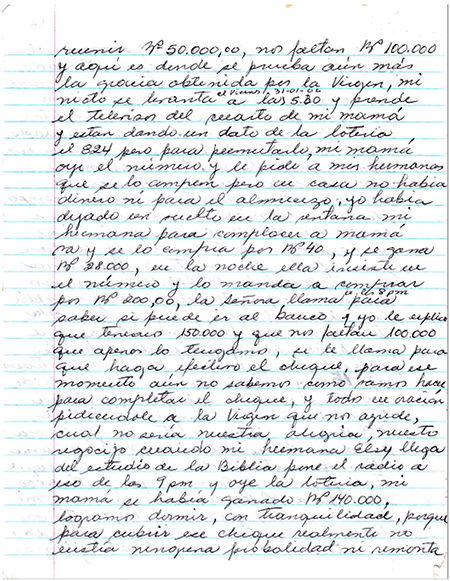 reunir Bs 50.000,00, nos faltan Bs 100.000
y aquí es donde se prueba aún más
la gracia obtenida por la Virgen, mi
el Viernes 31-01-06
nieto se levanta a las 5:30 y prende
el televisor del cuarto de mi mamá
y estan dando un dato de la loteria
el 824 pero para permutarlo, mi mamá
oye el número y le pide a mis hermanas
que se lo compren pero en casa no habia
dinero ni para el almuerzo, yo habia
dejado un vuelto en la ventana mi
hermana para complacer a mamá
va y se lo compra por Bs 40, y se gana
Bs 28.000, en la noche ella insiste en
el número y lo manda a comprar
a las 8 pm
por Bs 200,00, la señora llama para
saber si puede ir al banco y yo le explico
que tenemos 150.000 y que nos faltan 100.000
que apenas lo tengamos, se le llama para
que haga efectivo el cheque, para ese
momento aún no sabemos como vamos hacer
para completar el cheque, y todos en oración
pidiendole a la Virgen que nos ayude,
cual no seria nuestra alegria, nuestro
regocijo cuando mi hermana Elsy llega
del estudio de la Biblia pone el radio a
eso de las 9 pm y oye la loteria, mi
mamá se habia ganado Bs 140.000,
logramos dormir, con tranquilidad, porque
para cubrir ese cheque realmente no
existia ninguna probalidad ni remonta